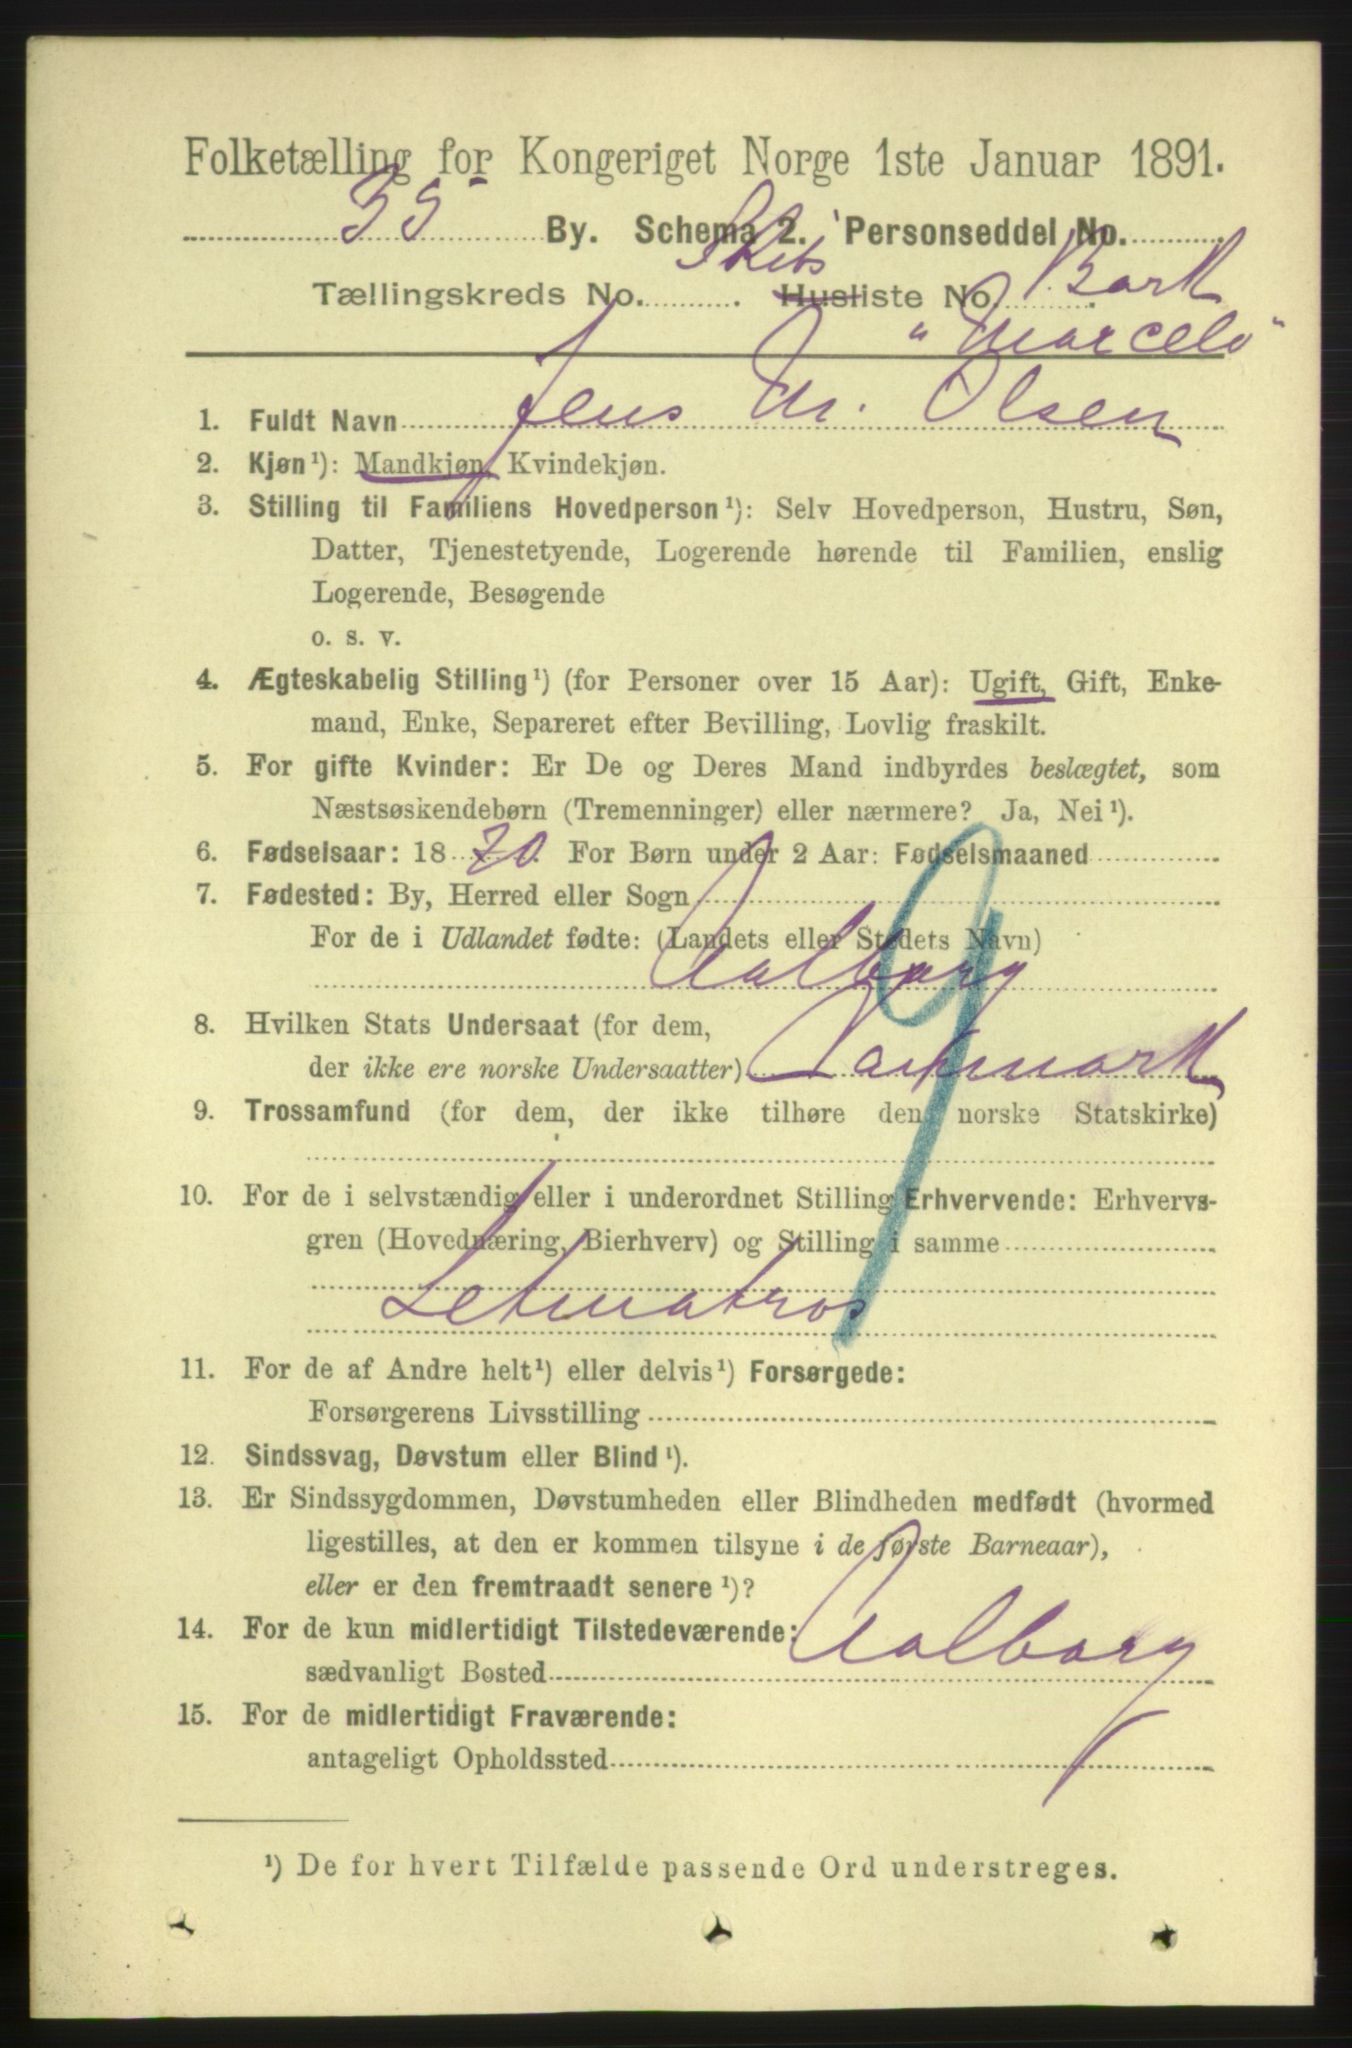 Folketælling for Kongeriget Norge 1ste Januar 1891.
35 By. Schema 2. Personseddel No.
Tællingskreds No. . Husliste No. .
Skibs Bark
"Marcelo"
1. Fuldt Navn Jens M. Olsen
2. Kjøn¹): Mandkjøn, Kvindekjøn.
3. Stilling til Familiens Hovedperson¹): Selv Hovedperson, Hustru, Søn,
Datter, Tjenestetyende, Logerende hørende til Familien, enslig
Logerende, Besøgende
o. s. v.
4. Ægteskabelig Stilling¹) (for Personer over 15 Aar): Ugift, Gift, Enke-
mand, Enke, Separeret efter Bevilling, Lovlig fraskilt.
5. For gifte Kvinder: Er De og Deres Mand indbyrdes beslægtet, som
Næstsøskendebørn (Tremenninger) eller nærmere? Ja, Nei¹).
6. Fødselsaar: 1870. For Børn under 2 Aar: Fødselsmaaned
7. Fødested: By, Herred eller Sogn
For de i Udlandet fødte: (Landets eller Stedets Navn)
Aalborg
9
8. Hvilken Stats Undersaat (for dem,
der ikke ere norske Undersaatter) Danmark
9. Trossamfund (for dem, der ikke tilhøre den norske Statskirke)
10. For de i selvstændig eller i underordnet Stilling Erhvervende: Erhvervs-
gren (Hovednæring, Bierhverv) og Stilling i samme
Letmatros
11. For de af Andre helt¹) eller delvis¹) Forsørgede:
Forsørgerens Livsstilling
12. Sindssvag, Døvstum eller Blind¹).
13. Er Sindssygdommen, Døvstumheden eller Blindheden medfødt (hvormed
ligestilles, at den er kommen tilsyne i de første Barneaar),
eller er den fremtraadt senere¹)?
14. For de kun midlertidigt Tilstedeværende:
sædvanligt Bosted Aalborg
15. For de midlertidigt Fraværende:
antageligt Opholdssted
¹) De for hvert Tilfælde passende Ord understreges.